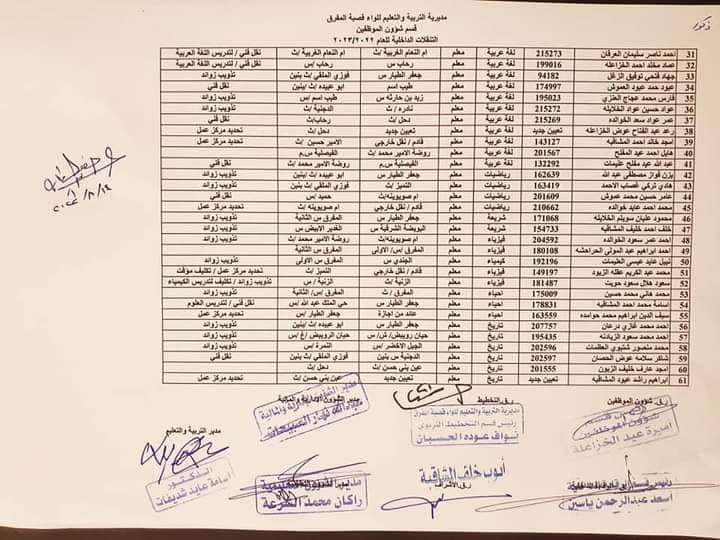 ذكور
مديرية التربية والتعليم للواء قصبة المفرق
قسم شؤون الموظفين
التنقلات الداخلية للعام ٢٠٢٣/٢٠٢٢
31 احمد ناصر سليمان العرفان 215273 لغة عربية معلم ام النعام الغربية /ث ام النعام الغربية /ث نقل فني / لتدريس اللغة العربية
32 عماد مخلد احمد الخزاعله 199016 لغة عربية معلم رحاب س رحاب /س نقل فني / لتدريس اللغة العربية
33 جهاد فتحي توفيق الزغل 94182 لغة عربية معلم جعفر الطيار س فوزي الملقي /ث بنين تذويب زوائد
34 عبود حمد عبود العموش 174997 لغة عربية معلم طيب اسم ابو عبيده /ث /بنين نقل فني
35 فارس محمد عجاج العنزي 195023 لغة عربية معلم زيد بن حارثه س طيب اسم /س تذويب زوائد
36 عواد حسين عواد الخلايله 215272 لغة عربية معلم نادره /ث الدجنية /ث نقل فني
37 عمر عواد سعد الخوالده 215269 لغة عربية معلم دحل /ث رحاب/ث نقل فني
38 رعد عبد الفتاح عوض الخزاعله تعيين جديد لغة عربية معلم تعيين جديد دحل /ث تحديد مركز عمل
39 امجد خالد احمد المشاقبه 143127 لغة عربية معلم قادم / نقل خارجي الامير حسين /ث تحديد مركز عمل
40 هايل احمد عبد المفلح 201567 لغة عربية معلم روضة الامير محمد /ث الفيصلية س.م
41 عبد الله عبد مفلح عليمات 132292 لغة عربية معلم الفيصلية س.م روضة الامير محمد /ث نقل فني
42 يزن فواز مصطفى عبد الله 162639 رياضيات معلم جعفر الطيار س فوزي الملقي /ث بنين تذويب زوائد
43 هادي تركي غصاب الاحمد 163419 رياضيات معلم التميز /ث ابو عبيده /ث /بنين تذويب زوائد
44 عامر حسين محمد عموش 201609 رياضيات معلم ام صويوينه/ث حميد /س نقل فني
45 محمد احمد عايد خوالده 210662 رياضيات معلم قادم / نقل خارجي ام صويوينه /ث تحديد مركز عمل
46 محمود عليان سويلم الخلايله 171068 شريعة معلم جعفر الطيار س المفرق س الثانية تذويب زوائد
47 خلف احمد خليف المشاقبه 154733 شريعة معلم البويضة الشرقية س الغدير الابيض س تذويب زوائد
48 احمد عمر سعود الخوالده 204592 فيزياء معلم ام صويوينه/ث روضة الامير محمد /ث تذويب زوائد
49 احمد ابراهيم عبد المولى الحراحشه 180108 فيزياء معلم المفرق /س/ الاولى المفرق س الثانية
50 نبيل عايد عيسى العليمات 192196 كيمياء معلم الجندي س المفرق س الاولى تذويب زوائد
51 محمد عبد الكريم عقله الزيود 149197 فيزياء معلم قادم / نقل خارجي التميز /ث تحديد مركز عمل / تكليف مؤقت
52 سعود هلال سعود حويت 181487 فيزياء معلم الزنية /ث الزنية / س تذويب زوائد / تكليف لتدريس الكيمياء
53 محمد هاني محمد حسين 175009 احياء معلم المفرق / ث المفرق /س/ الثانية تذويب زوائد
54 اسامة محمد احمد المشاقبه 175008 احياء معلم جعفر الطيار س حي الملك عبد الله /س نقل فني / لتدريس العلوم
55 سيف الدين ابراهيم محمد حوامده 163559 احياء معلم عائد من اجازة جعفر الطيار /س تحديد مركز عمل
56 احمد محمد غازي درعان 207757 تاريخ معلم جعفر الطيار س ابو عبيده /ث /بنين تذويب زوائد
57 احمد محمد سعود الزيادنه 195435 تاريخ معلم حيان الرويبض /ث/س حيان الرويبض /غ/س تذويب زوائد
58 محمد منصور شتيوي العظمات 202596 تاريخ معلم الجبل الاخضر /س الثمرة /س تذويب زوائد
59 شاكر سلامه عوض الحصان 202597 تاريخ معلم الدجنية س بنين فوزي الملقي /ث بنين نقل فني
60 امجد عارف خليف الزبون 201555 تاريخ معلم عين بني حسن /ث دحل /ث
61 ابراهيم راشد عبود المشاقبه تعيين جديد تاريخ معلم تعيين جديد عين بني حسن /ث تحديد مركز عمل
ر.ق. شؤون الموظفين
ر.ق. التخطيط
مدير الشؤون الادارية والمالية
مدير التربية والتعليم
شؤون الموظفين
اميرة عبد الخزاعلة
مديرية التربية والتعليم للواء قصبة المفرق
رئيس قسم التخطيط التربوي
نواف عوده الحسبان
الدكتور
اسامة عايد شديفات
مدير الشؤون التعليمية
راكان محمد الشرعة
أيوب خلف المشاقبة
ر.ق الاشراف
اسعد عبدالرحمن ياسين